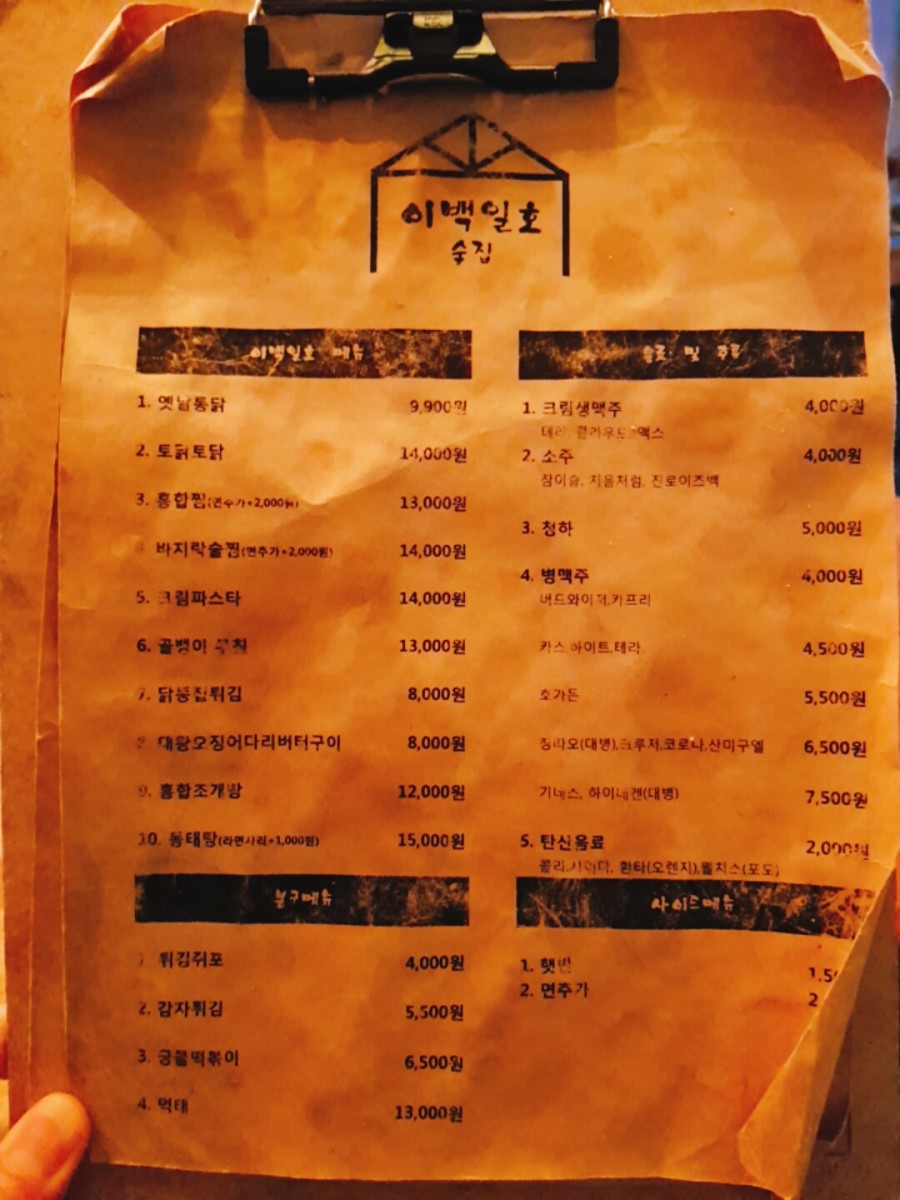 이백일호
술집
이백일호 메뉴
1. 옛날통닭 9,900원
2. 토닭토닭 14,000원
3. 홍합찜(면추가+2,000원) 13,000원
바지락술찜(면추가+2,000원) 14,000원
5. 크림파스타 14,000원
6. 골뱅이 무침 13,000원
7. 닭똥집튀김 8,000원
8. 대왕오징어다리버터구이 8,000원
9. 홍합조개탕 12,000원
10. 동태탕(라면사리+1,000원) 15,000원
봉구메뉴
1. 튀김쥐포 4,000원
2. 감자튀김 5,500원
3. 궁물떡볶이 6,500원
4. 먹태 13,000원
음료 및 주류
1. 크림생맥주 4,000원
테라, 클라우드, 맥스
2. 소주 4,000원
참이슬, 처음처럼, 진로이즈백
3. 청하 5,000원
4. 병맥주 4,000원
버드와이저,카프리
카스,하이트,테라 4,500원
호가든 5,500원
칭따오(대병),크루저,코로나,산미구엘 6,500원
기네스, 하이네켄(대병) 7,500원
5. 탄산음료 2,000원
콜라,사이다, 환타(오렌지),웰치스(포도)
사이드메뉴
1. 햇반 1.5
2. 면추가 2